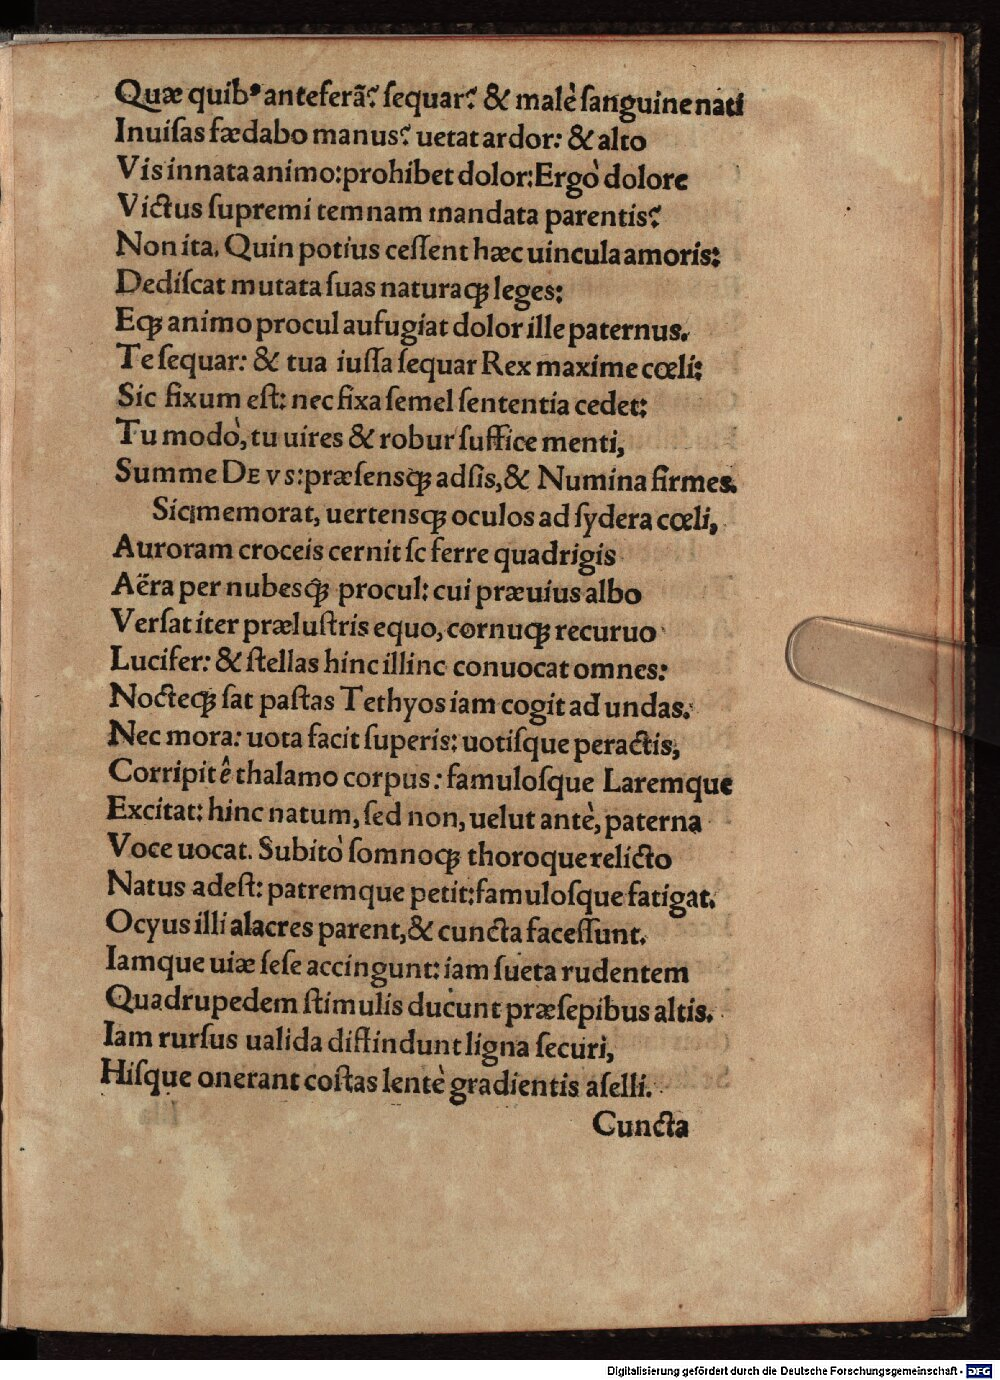 Quæ quibꝰ anteferã? ſequar? & malè ſanguine nati
Inuiſas fædabo manus? uetat ardor: & alto
Vis innata animo: prohibet dolor: Ergò dolore
Victus ſupremi temnam mandata parentis?
Non ita. Quin potius ceſſent hæc uincula amoris:
Dediſcat mutata ſuas naturaqꝫ leges:
Eqꝫ animo procul aufugiat dolor ille paternus.
Te ſequar: & tua iuſſa ſequar Rex maxime cœli:
Sic fixum eſt: nec fixa ſemel ſententia cedet:
Tu modò, tu uires & robur ſuffice menti,
Summe DEVS: præſensqꝫ adſis, & Numina firmes.
Sic memorat, uertensqꝫ oculos ad ſydera cœli,
Auroram croceis cernit ſe ferre quadrigis
Aëra per nubesqꝫ procul: cui præuius albo
Verſat iter præluſtris equo, cornuqꝫ recuruo
Lucifer: & ſtellas hinc illinc conuocat omnes:
Nocteqꝫ ſat paſtas Tethyos iam cogit ad undas.
Nec mora: uota facit ſuperis: uotiſque peractis,
Corripit ê thalamo corpus: famuloſque Laremque
Excitat: hinc natum, ſed non, uelut antè, paterna
Voce uocat. Subitò ſomnoqꝫ thoroque relicto
Natus adeſt: patremque petit: famuloſque fatigat.
Ocyus illi alacres parent, & cuncta faceſſunt.
Iamque uiæ ſeſe accingunt: iam ſueta rudentem
Quadrupedem ſtimulis ducunt præſepibus altis.
Iam rurſus ualida diffindunt ligna ſecuri,
Hiſque onerant coſtas lentè gradientis aſelli.
Cuncta
Digitalisierung gefördert durch die Deutsche Forschungsgemeinschaft - DFG